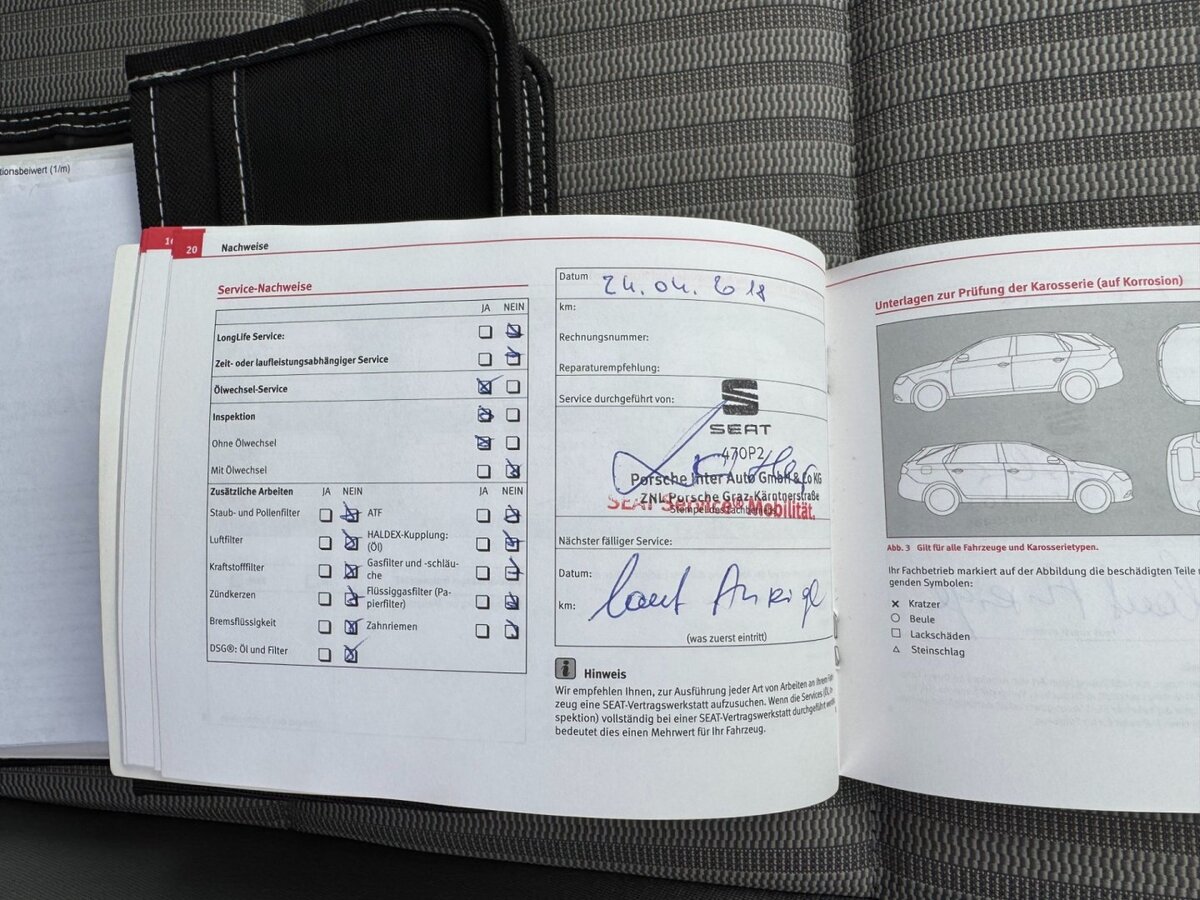 tionsbeiwert (1/m)
20 Nachweise
Service-Nachweise
JA NEIN
LongLife Service:
Zeit- oder laufleistungsabhängiger Service
Ölwechsel-Service
Inspektion
Ohne Ölwechsel
Mit Ölwechsel
Zusätzliche Arbeiten JA NEIN JA NEIN
Staub- und Pollenfilter ATF
Luftfilter HALDEX-Kupplung:
(Öl)
Kraftstofffilter Gasfilter und -schläu-
che
Zündkerzen Flüssiggasfilter (Pa-
pierfilter)
Bremsflüssigkeit Zahnriemen
DSG®: Öl und Filter
Datum 24.04.2018
km:
Rechnungsnummer:
Reparaturempfehlung:
Service durchgeführt von:
SEAT
470P2
Porsche Inter Auto GmbH & Co KG
ZNL Porsche Graz-Kärntnerstraße
SEAT Service® Mobilität.
Stempel des Fachbetriebs
Nächster fälliger Service:
Datum:
km:
laut Anzeige
(was zuerst eintritt)
Hinweis
Wir empfehlen Ihnen, zur Ausführung jeder Art von Arbeiten an Ihrem
zeug eine SEAT-Vertragswerkstatt aufzusuchen. Wenn die Services
spektion) vollständig bei einer SEAT-Vertragswerkstatt durchgeführt
bedeutet dies einen Mehrwert für Ihr Fahrzeug.
Unterlagen zur Prüfung der Karosserie (auf Korrosion)
Abb. 3 Gilt für alle Fahrzeuge und Karosserietypen.
Ihr Fachbetrieb markiert auf der Abbildung die beschädigten Teile
genden Symbolen:
Kratzer
Beule
Lackschäden
Steinschlag